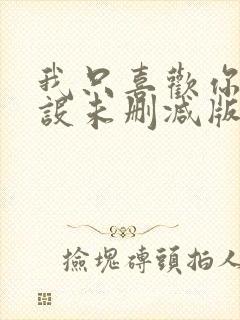 我只喜歡你
設未刪減版
撿塊磚頭拍人